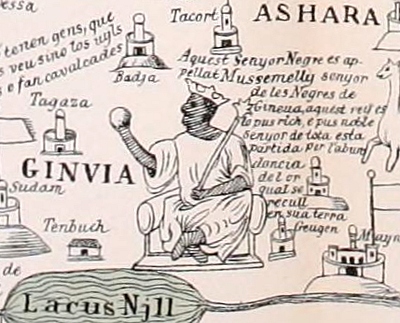 essa
Tacort
ASHARA
tenen gens, que
s veu sino tos uyls
e fan cavalcades
Badja
Aquest Senyor Negre es ap-
pellat Mussemelly senyor
de les Negres de
Gineua, aquest rey es
lo pus rich, e pus noble
senyor de tota esta
partida per l'abun
dancia
del or
qual se
recull
en sua terra
Tagaza
GINVIA
Sudam
Tenbuch
Geugen
Mayn
de
Lacus Njll